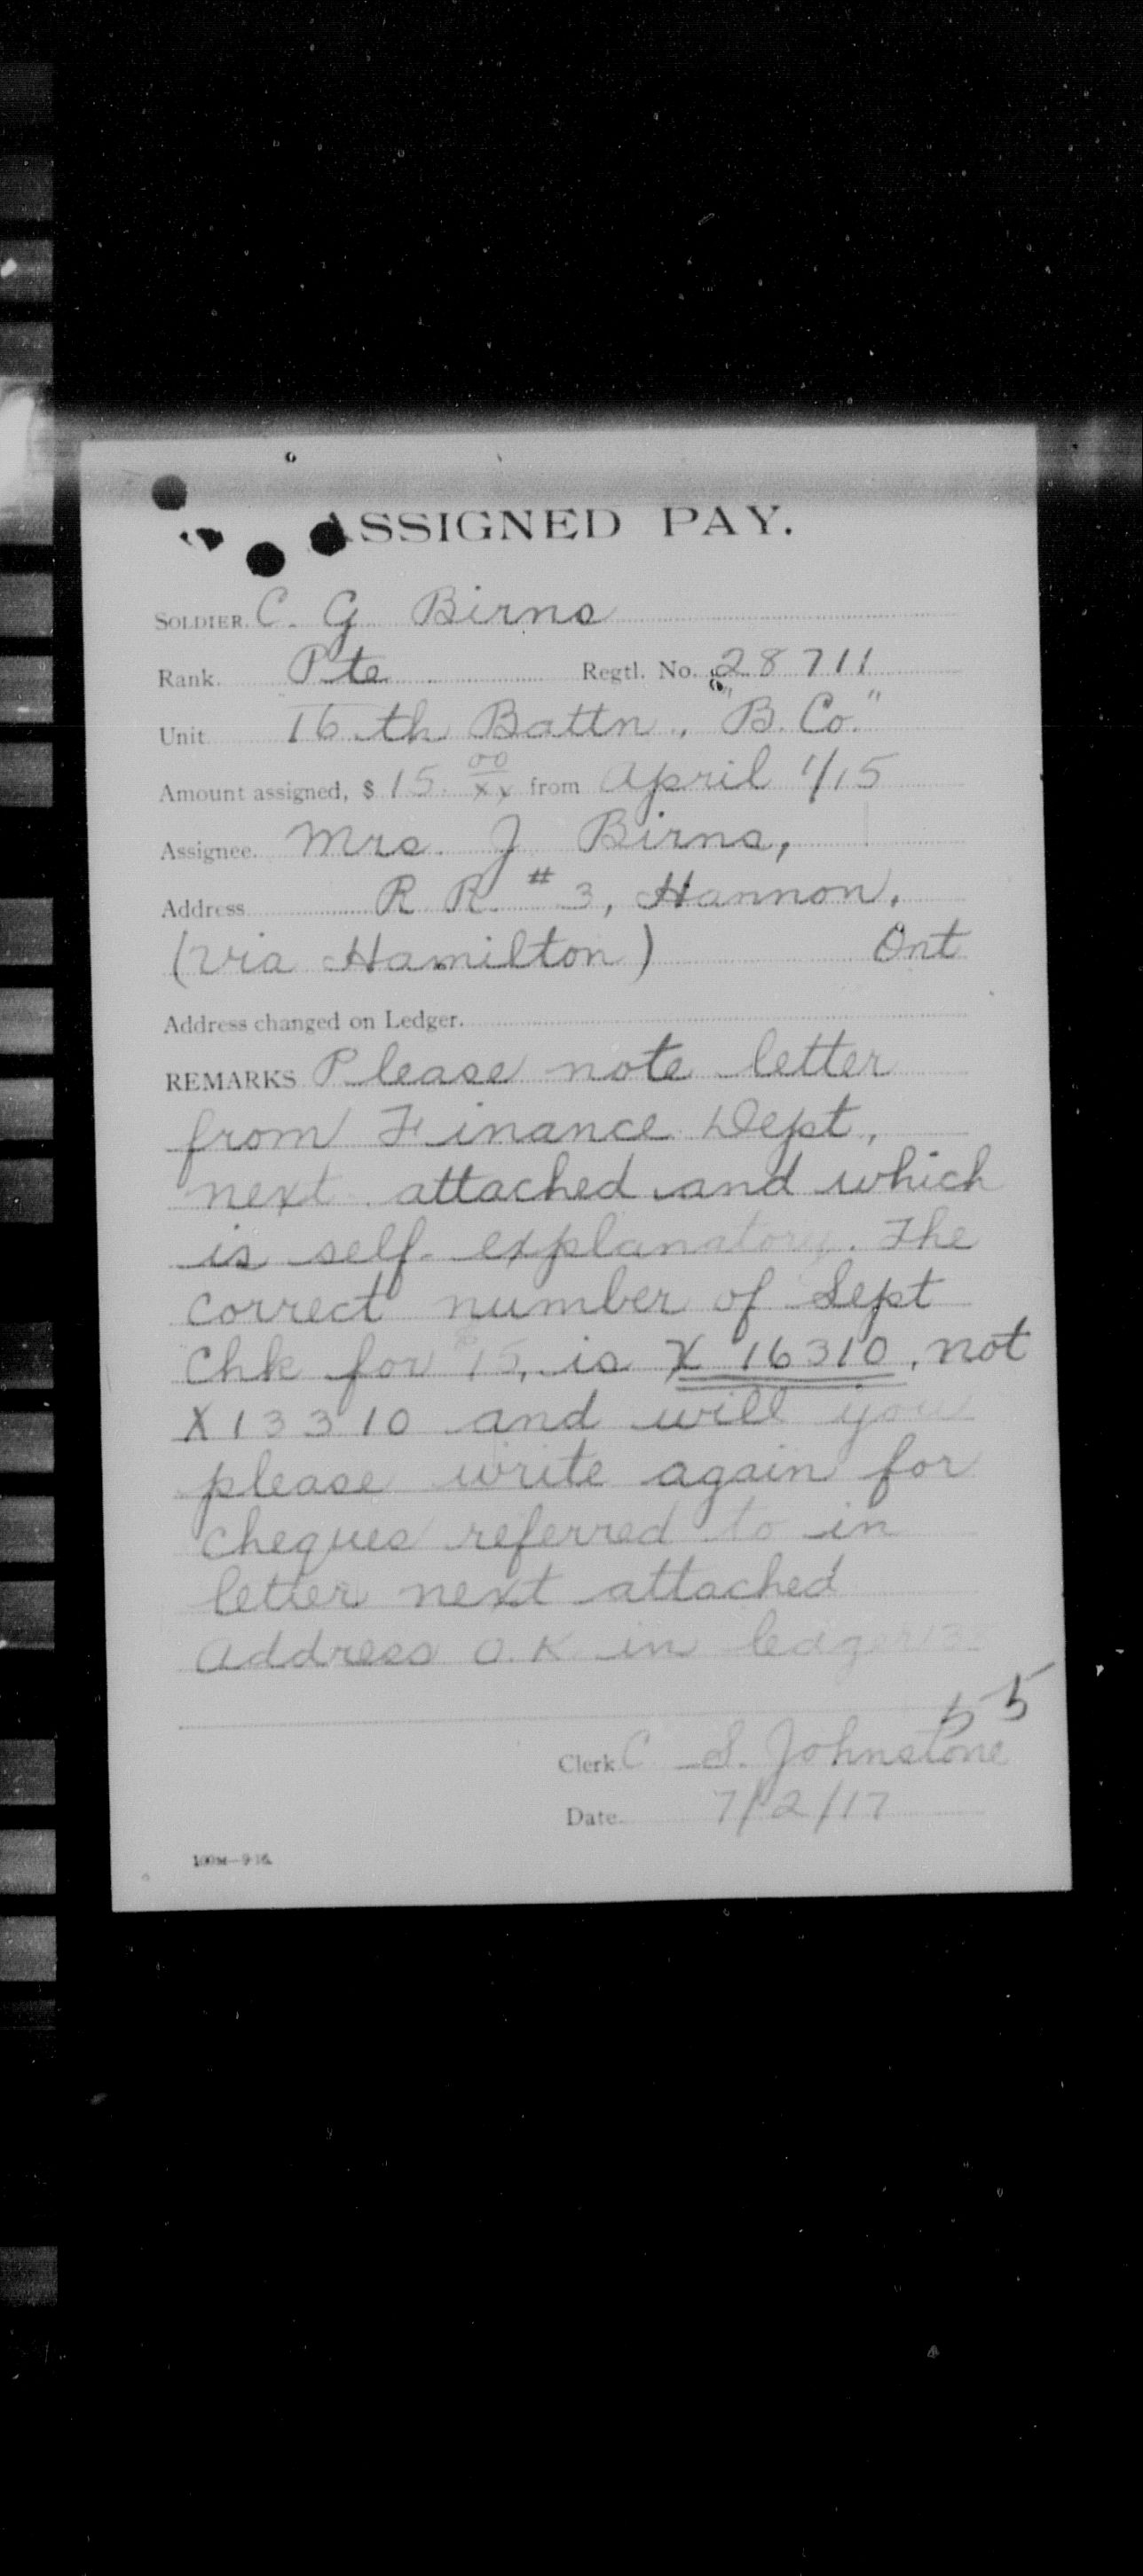 ASSIGNED PAY.
SOLDIER. C. G Birns
Rank. Pte Regtl. No. 28711
Unit 16th Battn, "B. Co."
Amount assigned, $ 15 00/xx from April 1/15
Assignee. Mrs. J Birns,
Address R R. # 3, Hannon,
(via Hamilton) Ont
Address changed on Ledger.
REMARKS Please note letter
from Finance Dept,
next attached and which
is self explanatory. The
correct number of Sept
Chk for 15, is X 16310, not
X13310 and will you
please write again for
cheques referred to in
letter next attached
Address O.K in ledger
55
Clerk C S. Johnstone
Date. 7/2/17
100M-9-16.